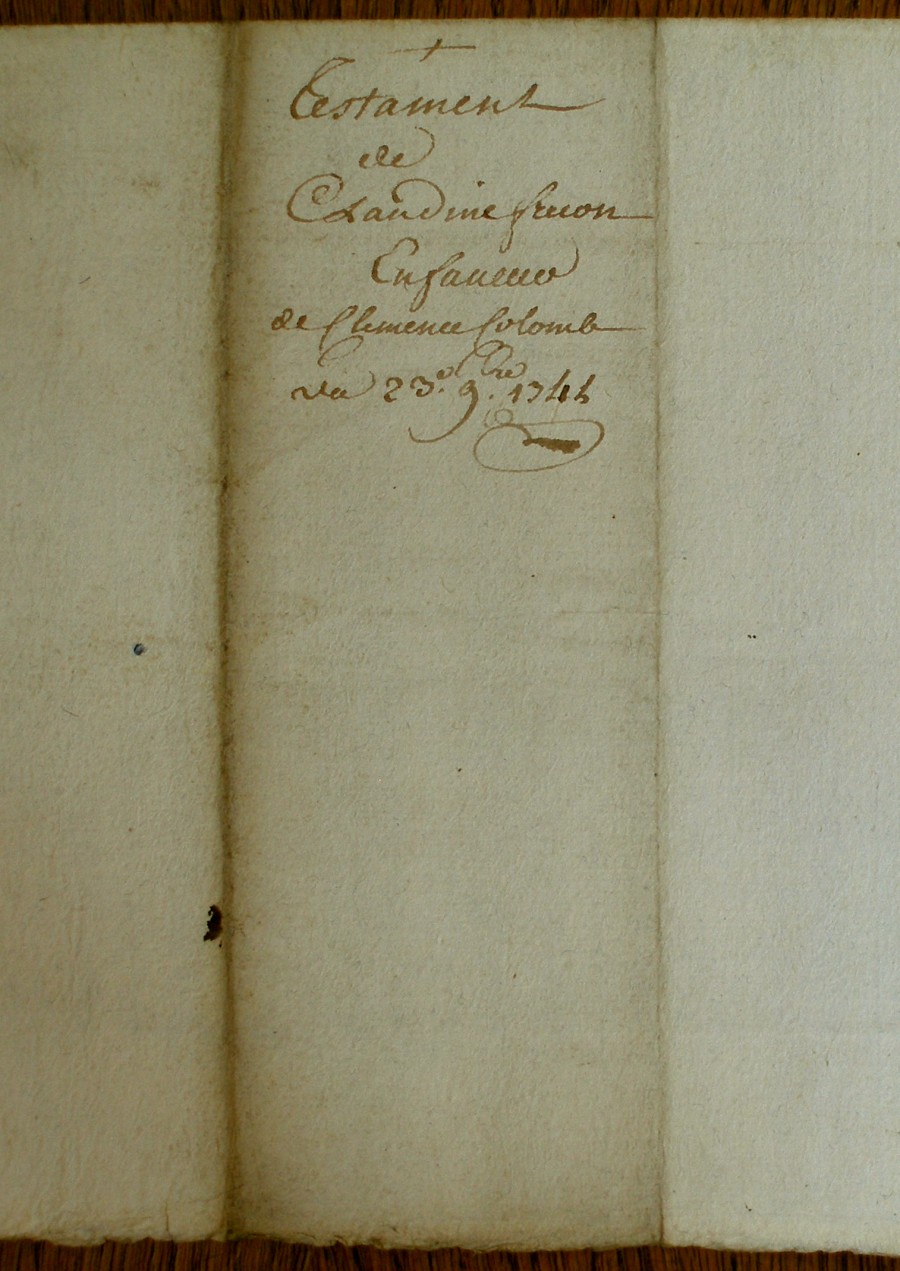 +
Testament
de
Claudine fruon
En faueur
de Clemence Colomb
du 23.e 9.bre 1744